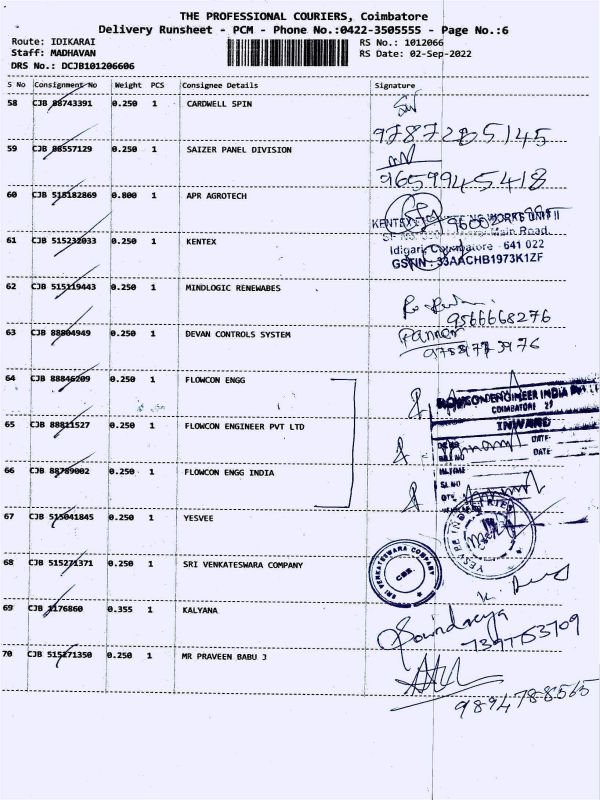 THE PROFESSIONAL COURIERS, Coimbatore
Delivery Runsheet - PCM - Phone No.:0422-3505555 - Page No.:6
Route: IDIKARAI
RS No.: 1012066
Staff: MADHAVAN
RS Date: 02-Sep-2022
DRS No.: DCJB101206606
S No Consignment No Weight PCS Consignee Details Signature
58 CJB 88743391 0.250 1 CARDWELL SPIN
9787205145
59 CJB 88557129 0.250 1 SAIZER PANEL DIVISION
9659945418
60 CJB 515182869 0.800 1 APR AGROTECH
KENTEX WORKS UNIT II
Main Road
61 CJB 515232033 0.250 1 KENTEX
Idigarai, Coimbatore - 641 022
GSTIN : 33AACHB1973K1ZF
62 CJB 515119443 0.250 1 MINDLOGIC RENEWABES
9566668276
63 CJB 88804949 0.250 1 DEVAN CONTROLS SYSTEM
64 CJB 88846209 0.250 1 FLOWCON ENGG
ENGINEER INDIA
COIMBATORE
65 CJB 88811527 0.250 1 FLOWCON ENGINEER PVT LTD
INWARD
DATE
DATE
66 CJB 88789002 0.250 1 FLOWCON ENGG INDIA
SL.NO
QTY
67 CJB 515041845 0.250 1 YESVEE
68 CJB 515271371 0.250 1 SRI VENKATESWARA COMPANY
SRI VENKATESWARA COMPANY
CBE
69 CJB 1176860 0.355 1 KALYANA
Soundarya
70 CJB 515271350 0.250 1 MR PRAVEEN BABU J
9894788565